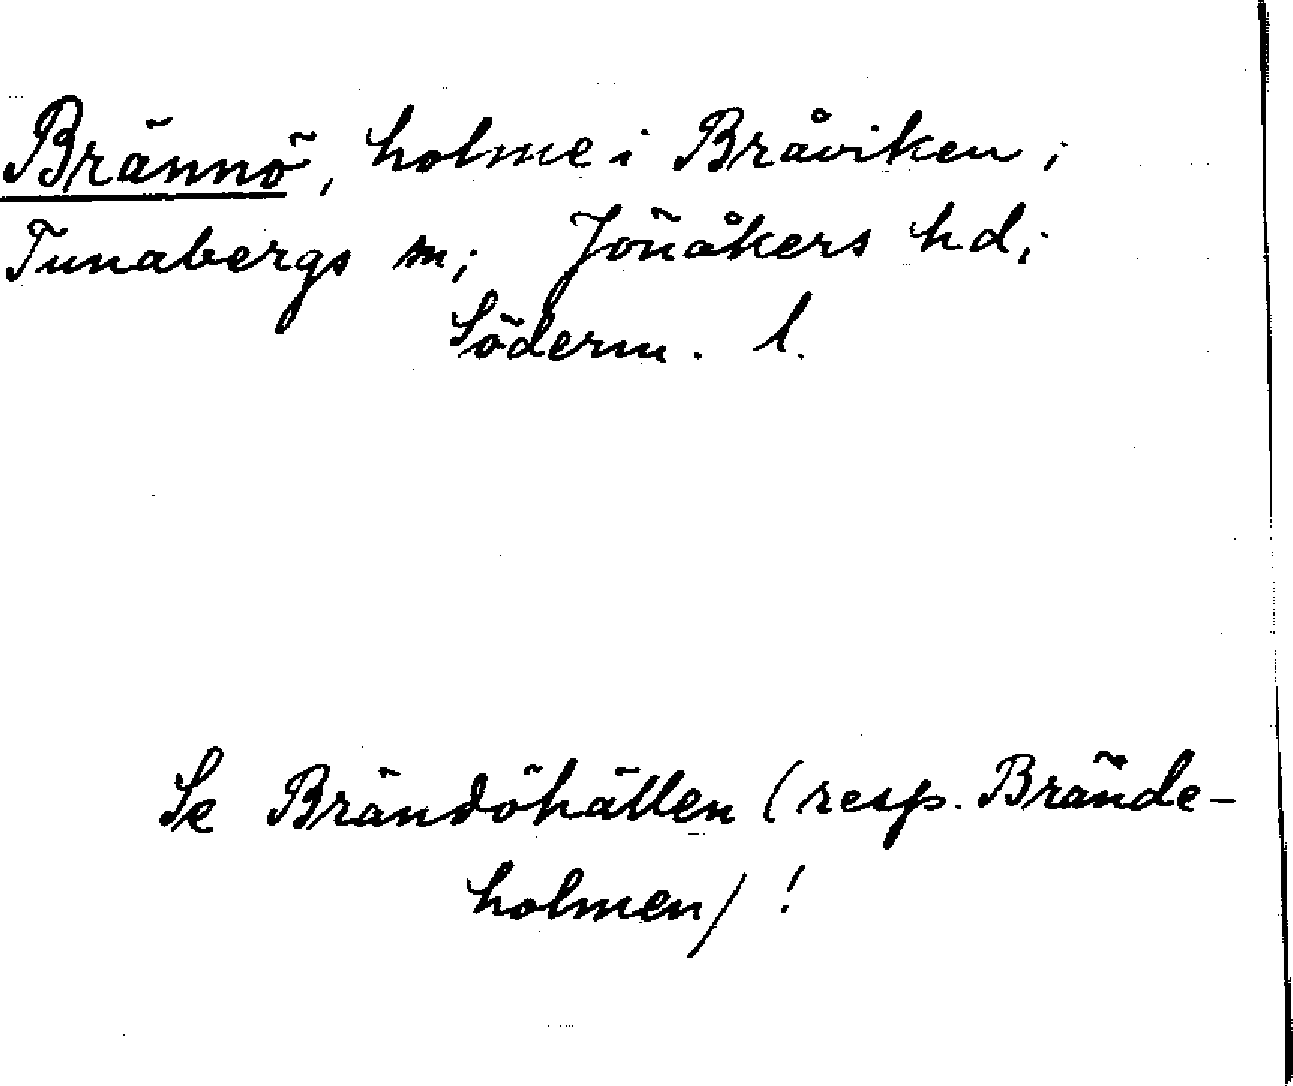 Brännö, holme i Bråviken;
Tunabergs sn; Jönåkers hd;
Söderm. l.
Se Brändöhällen (resp. Brände-
holmen)!